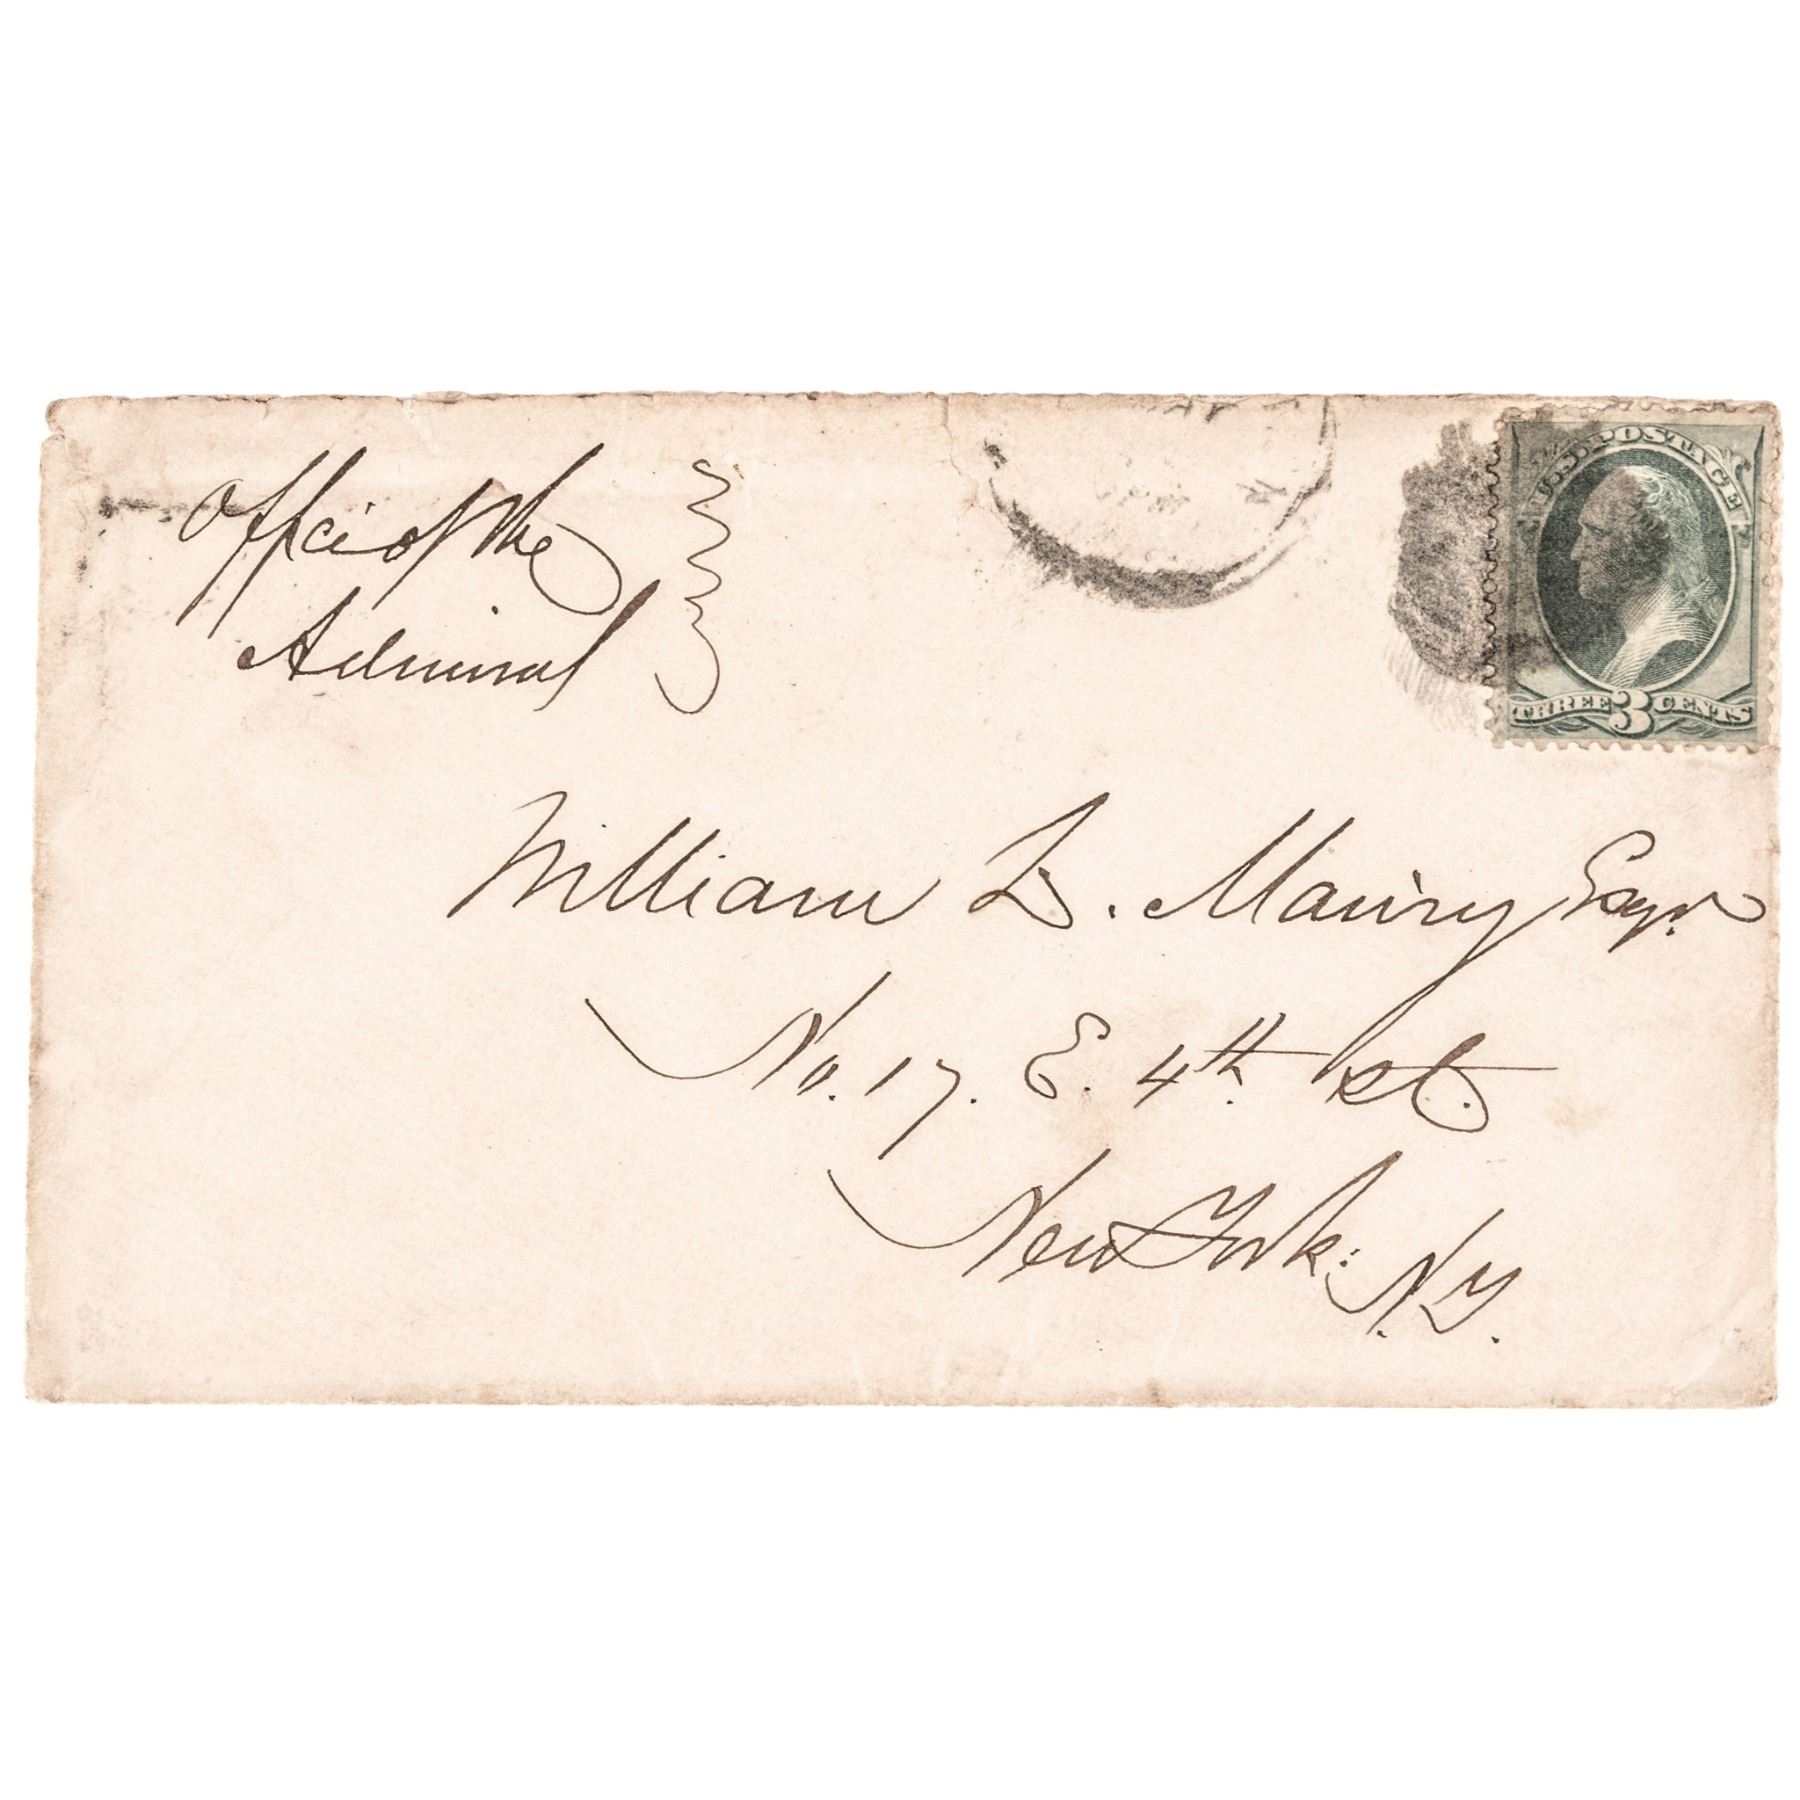 Office of the
Admiral
U.S. POSTAGE
THREE 3 CENTS
William L. Maury Esqr.
No. 17. E. 4th St.
New York: N.Y.